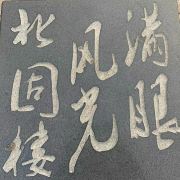 满眼
风光
北固楼